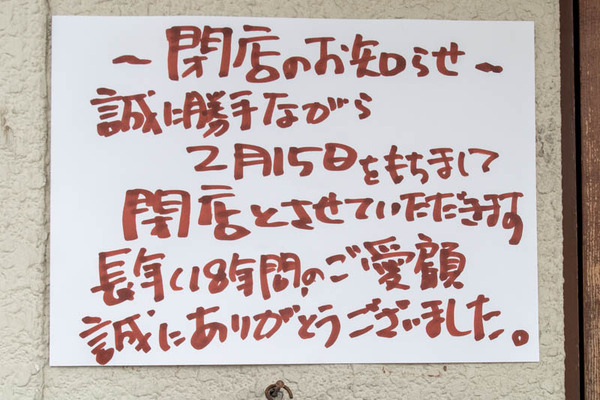 ～閉店のお知らせ～
誠に勝手ながら
2月15日をもちまして
閉店とさせていただきます
長年く18年間のご愛顧
誠にありがとうございました。